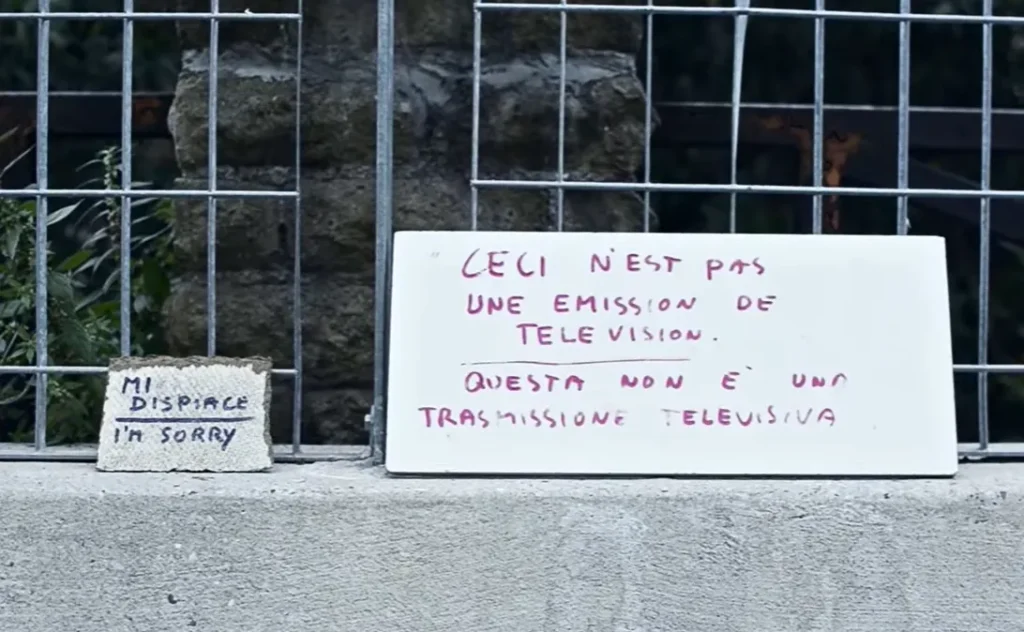 MI
DISPIACE
I'M SORRY
CECI N'EST PAS
UNE EMISSION DE
TELEVISION.
QUESTA NON E' UNA
TRASMISSIONE TELEVISIVA